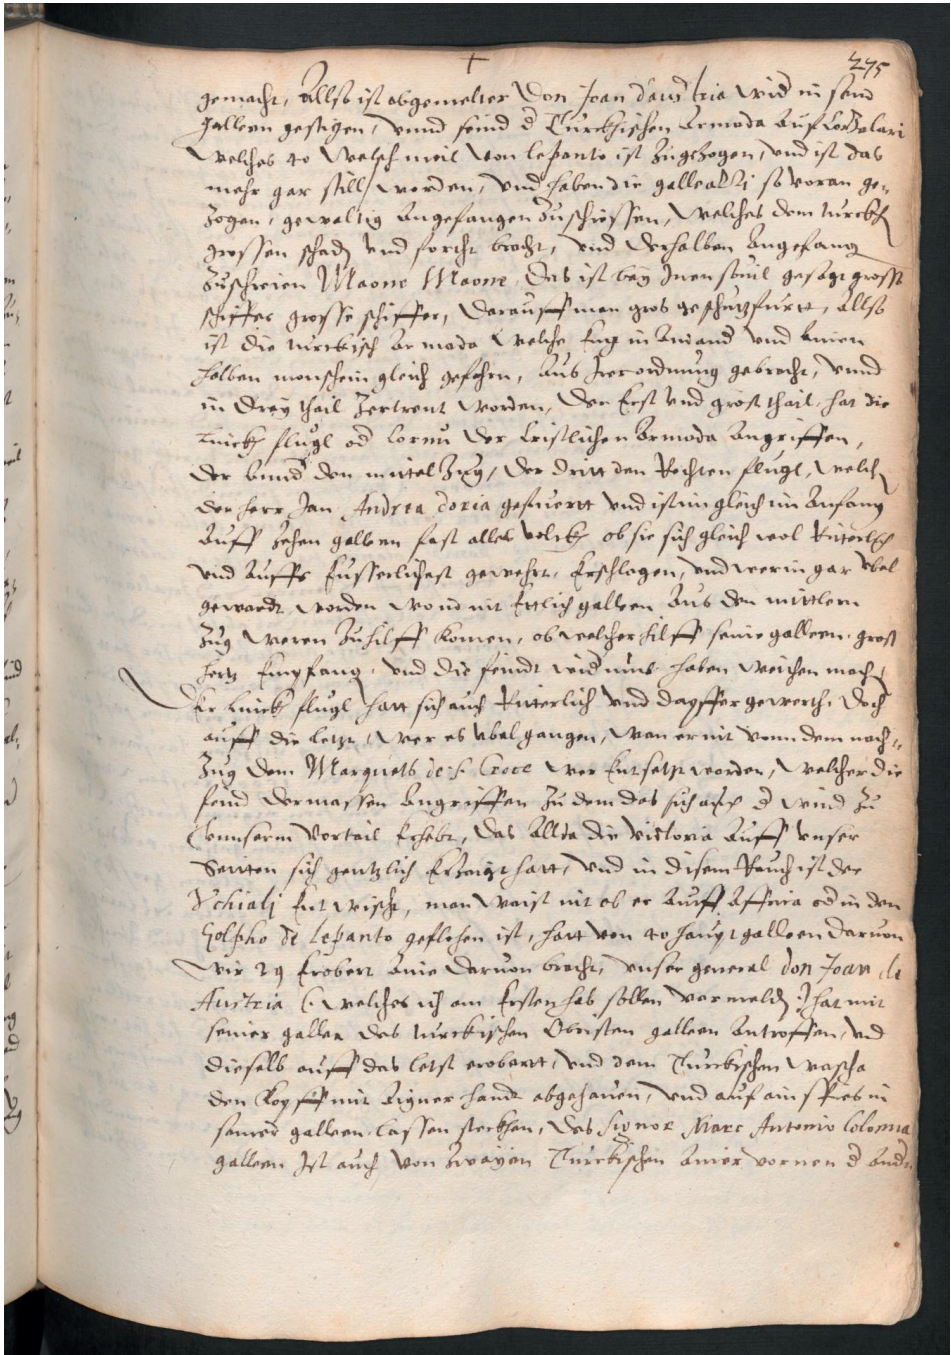 275
gemacht, Allso ist abgemelter Don Joan d'austria wid in sein
galleen gestigen, vnnd seind d Türckischen Armada auf Corzolari
welches 40 welsch meil von lepanto ist zugezogen, vnd ist das
mehr gar still worden, vnd haben die galleazzi so voran ge-
zogen, gewaltig angefangen zuschiessen, welches dem turckh
grossen schadn vnd forcht bracht, vnd derhalben angefang
zuschreien Maone Maone, das ist bey Inen souil gesagt grosse
schiffer grosse schiffer, darauff man gros geschutz furtt, Allso
ist die turckisch Armada welche Eng in Ainand vnd Ainen
halben monschein gleich gefahrn, aus Irer ordnung gebracht, vnnd
in drey thail zertrent worden, der Erst vnd grost thail, hat die
Linckh flugl od Cornu der Cristlichen Armada angriffen,
der Annd den mittel Zug, der dritt den Rechten flugl, welchn
der herr Jan Andrea doria gefuertt vnd ist im gleich im Anfang
Auff zehen galleen fast alles volckh, ob sie sich gleich wol Ritterlich
vnd Auffs Eusserlichest gewehrt, Erschlagen, vnd wer im gar vbel
gewardt worden wo nit Ettlich galleen aus dem mittlern
Zug weren zuhilff komen, ob welcher hilff seine galleen gross
hertz Empfang, vnd die feindt wid umb haben weichen machn
Der linck flugl hatt sich auch Ritterlich vnd dapffer gewerth, doch
auff die letzt wer es vbel gangen, wan er nit vonn dem nach-
Zug dem Marquets de s. Croce wer Entsetzt worden, welcher die
feind dermassen Angriffen zu dem das sich auch d wind zu
vnnserm vortail Erhebt, das Allda die victoria Auff vnser
Seitten sich gentzlich Erzaigt hatt, vnd in disem Rauch ist der
Vchialj Entwischt, man waist nit ob er Auff Affrica od in den
Golpho de lepanto geflohen ist, hatt von 40 haupt galleen daruon
wir 29 Erobert Aine daruon bracht, vnser general don Joan de
Austria (: welches ich am Ersten hab sollen vermeldn :) hat mit
seiner galleen des turckischen Obristen galleen antroffen, vnd
dieselb auff das letst erobertt, vnd dem Türckischen wascha
den Kopff mit Aigner handt abgehauen, vnd auf ain spies in
seiner galleen lassen steckhen, des Signor Marc Antonio Colonna
galleen Ist auch von Zwayen Türckischen Ainer vornen d Ander